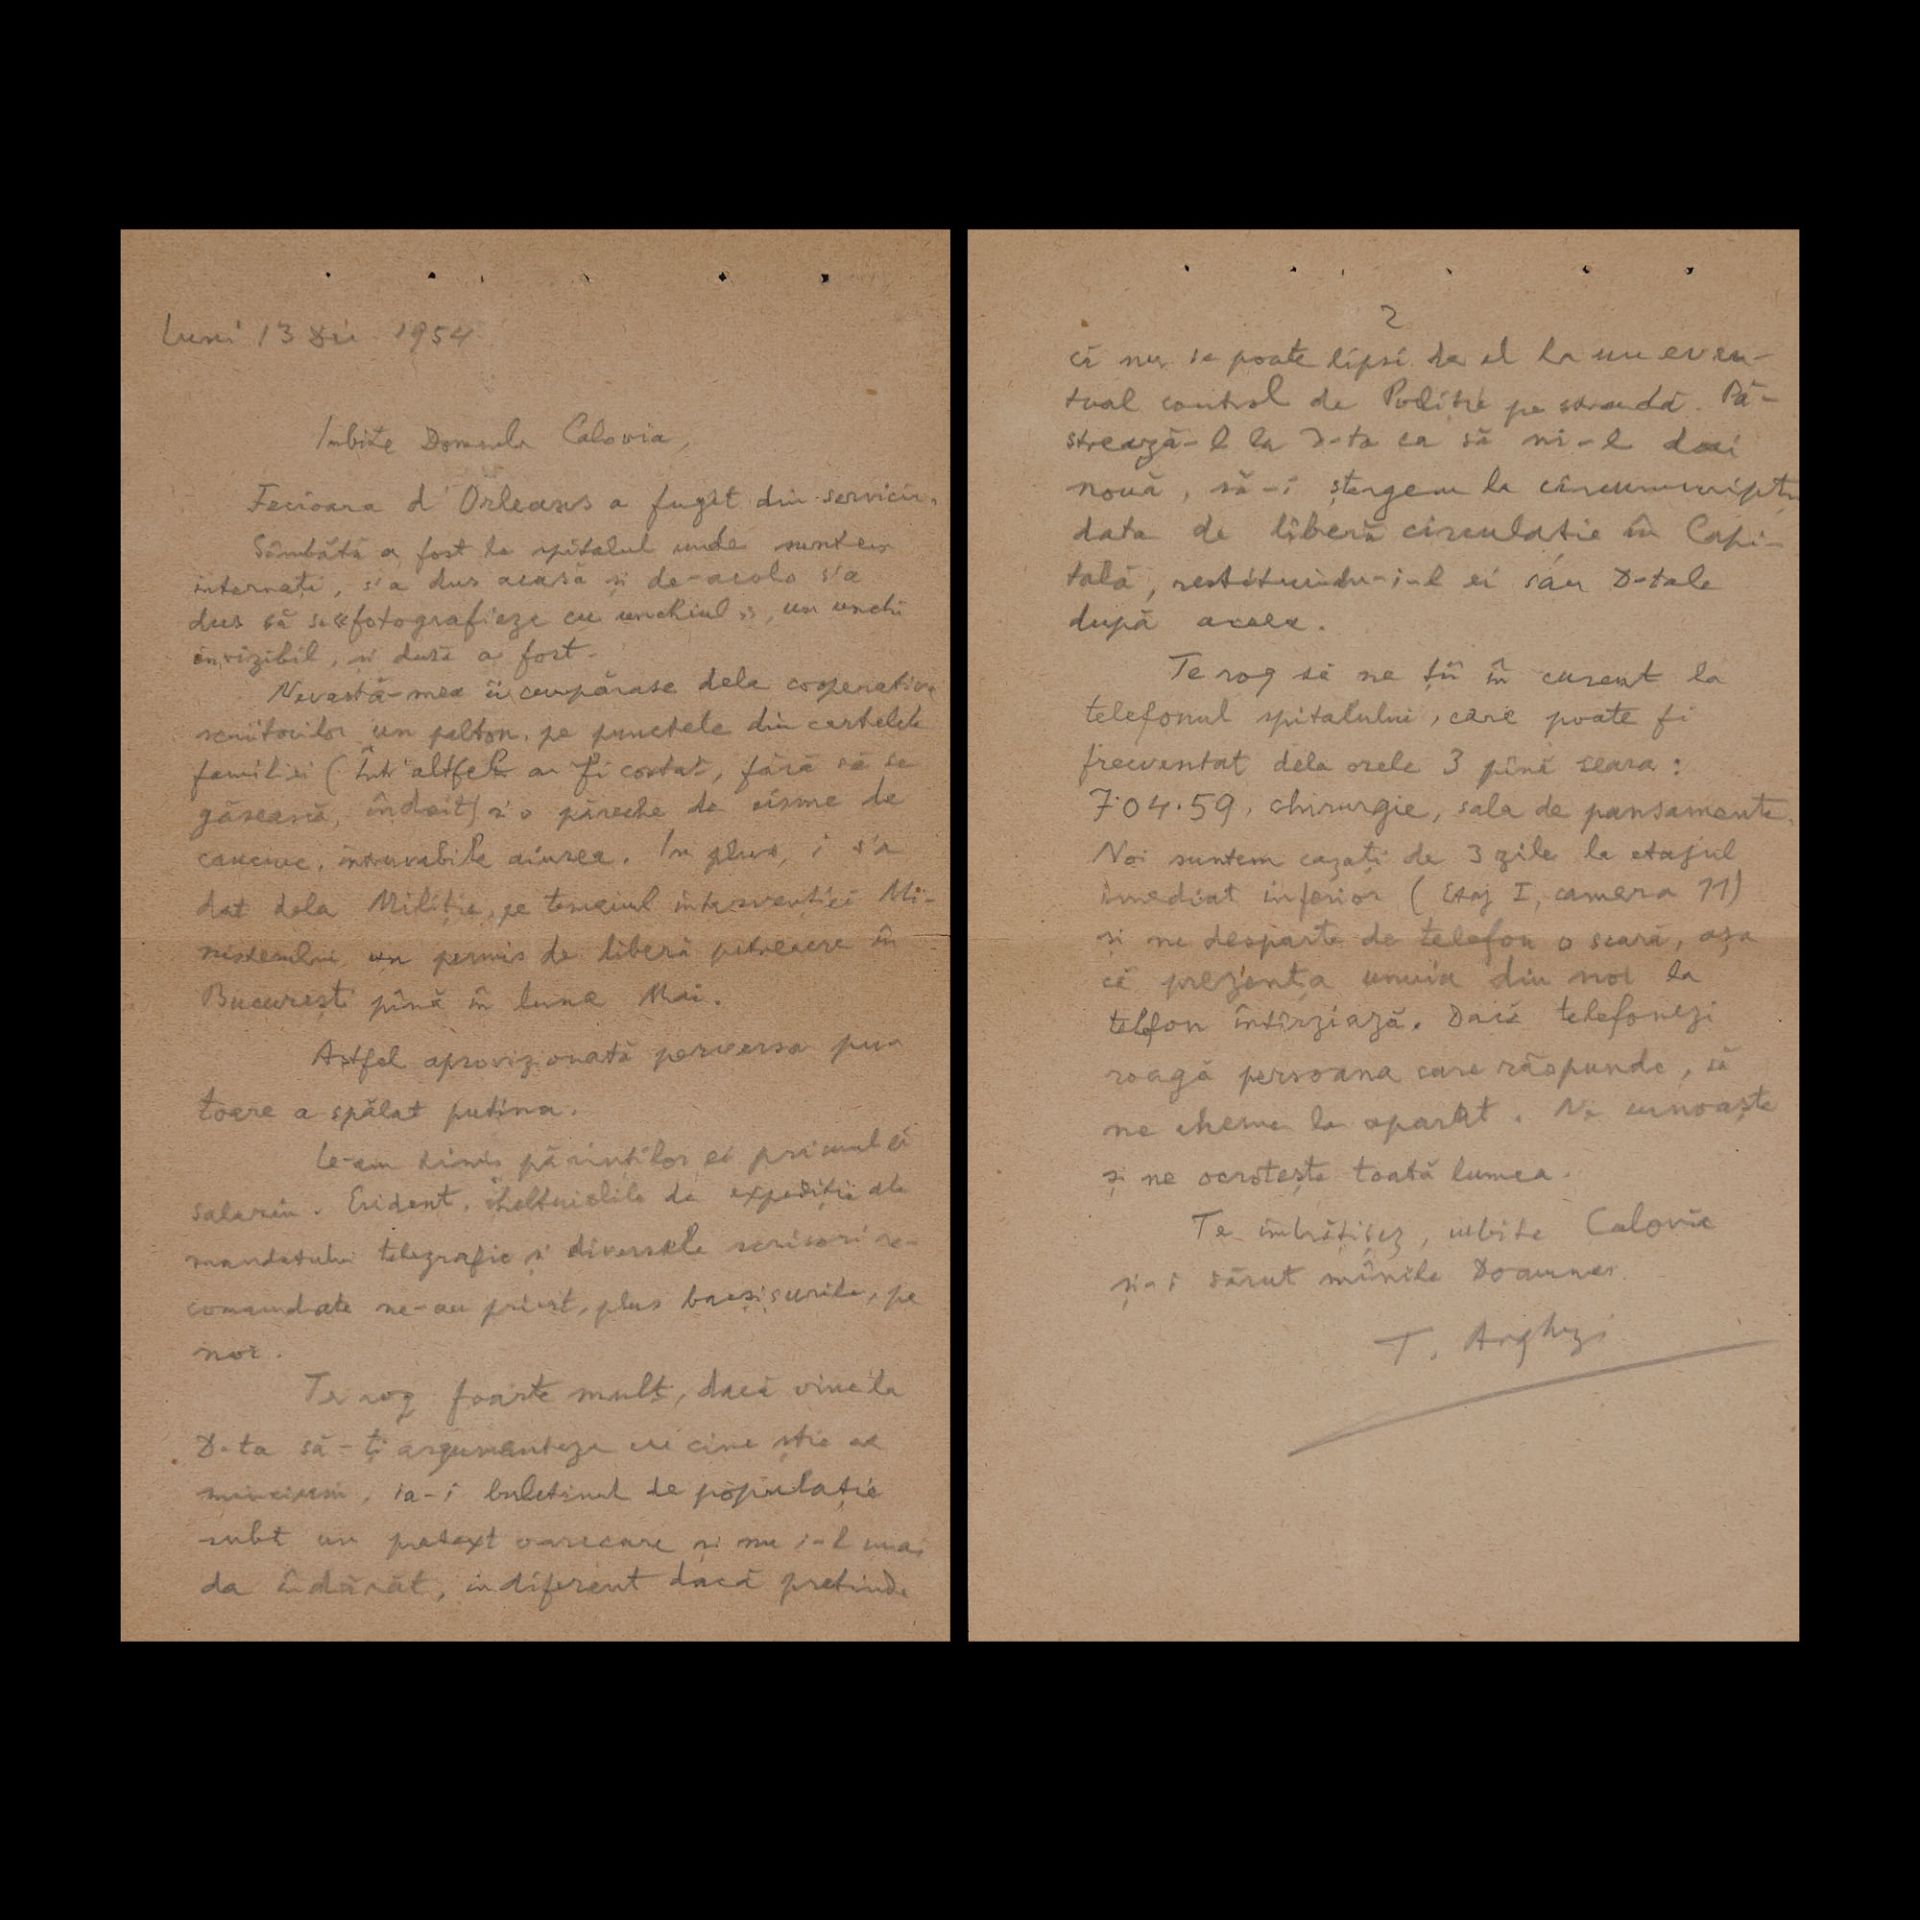 Luni 13 Dec. 1954
Iubite Domnule Calovia,
Fecioara d'Orleans a fugit din serviciu.
Sâmbătă a fost la spitalul unde suntem
internați, s'a dus acasă și de-acolo s'a
dus să se „fotografieze cu unchiul", un unchi
invizibil, și dusă a fost.
Nevastă-mea îi cumpărase dela cooperativa
scriitorilor un palton, pe punctele din cartelele
familiei (Într'altfel ar fi costat, fără să se
găsească, îndoit) s'o păreche de cisme de
cauciuc, introuvabile aiurea. În plus, i s'a
dat dela Miliție, pe temeiul intervenției Mi-
nisterului un permis de liberă petrecere în
București pînă în luna Mai.
Astfel aprovizionată perversa pu-
toare a spălat putina.
Le-am trimis părinților ei primul ei
salariu. Evident, cheltuielile de expediție ale
mandatului telegrafic și diversele scrisori re-
comandate ne-au privit, plus bacșișurile, pe
noi.
Te rog foarte mult, dacă vine la
D-ta să-ți argumenteze cu cine știe ce
minciuni, ia-i buletinul de populație
subt un pretext oarecare și nu i-l mai
da îndărăt, indiferent dacă pretinde
2
că nu se poate lipsi de el la un even-
tual control de Poliție pe stradă. Pă-
strează-l la D-ta ca să ni-l dai
nouă, să-i ștergem la circumscripție
data de liberă circulație în Capi-
tală, restituindu-i-l ei sau D-tale
după aceea.
Te rog să ne ții în curent la
telefonul spitalului, care poate fi
frecventat dela orele 3 pînă seara:
7.04.59, chirurgie, sala de pansamente.
Noi suntem cazați de 3 zile la etajul
imediat inferior (Etaj I, camera 11)
și ne desparte de telefon o scară, așa
că prezența unuia din noi la
telefon întîrziază. Dacă telefonezi
roagă persoana care răspunde, să
ne cheme la aparat. Ne cunoaște
și ne ocrotește toată lumea.
Te îmbrățișez, iubite Calovia
și-i sărut mînile Doamnei
T. Arghezi